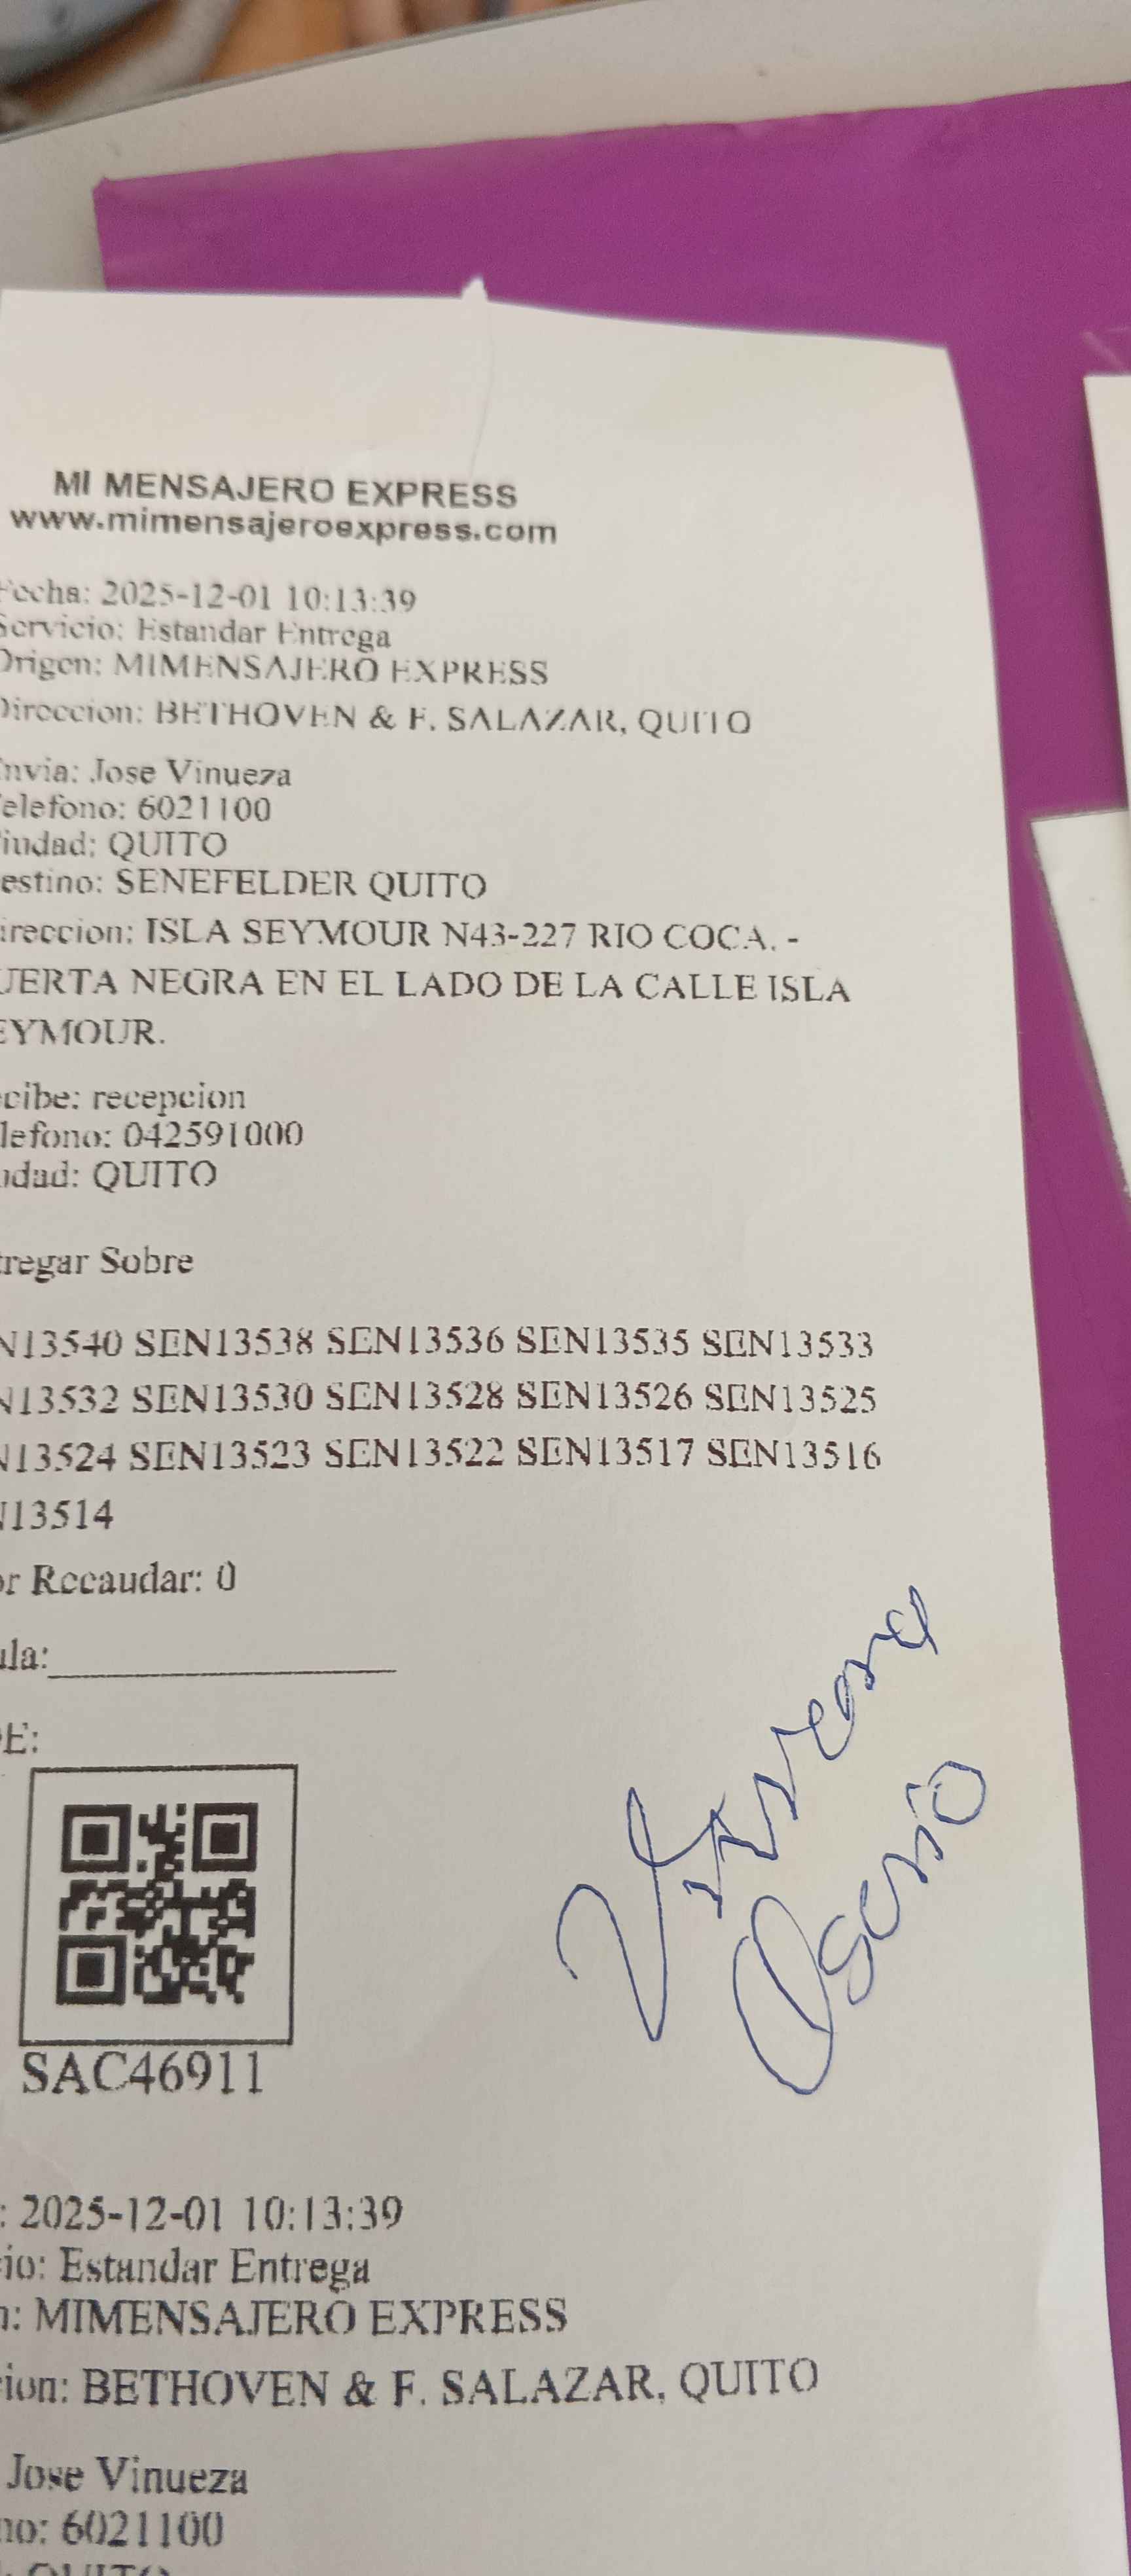 MI MENSAJERO EXPRESS
www.mimensajeroexpress.com
Fecha: 2025-12-01 10:13:39
Servicio: Estandar Entrega
Origen: MIMENSAJERO EXPRESS
Direccion: BETHOVEN & F. SALAZAR, QUITO
nvia: Jose Vinueza
elefono: 6021100
iudad: QUITO
estino: SENEFELDER QUITO
ireccion: ISLA SEYMOUR N43-227 RIO COCA. -
UERTA NEGRA EN EL LADO DE LA CALLE ISLA
EYMOUR.
cibe: recepcion
lefono: 042591000
udad: QUITO
tregar Sobre
N13540 SEN13538 SEN13536 SEN13535 SEN13533
N13532 SEN13530 SEN13528 SEN13526 SEN13525
N13524 SEN13523 SEN13522 SEN13517 SEN13516
N13514
or Recaudar: 0
ula:
E:
Osorio
SAC46911
: 2025-12-01 10:13:39
io: Estandar Entrega
n: MIMENSAJERO EXPRESS
ion: BETHOVEN & F. SALAZAR, QUITO
Jose Vinueza
no: 6021100
QUITO